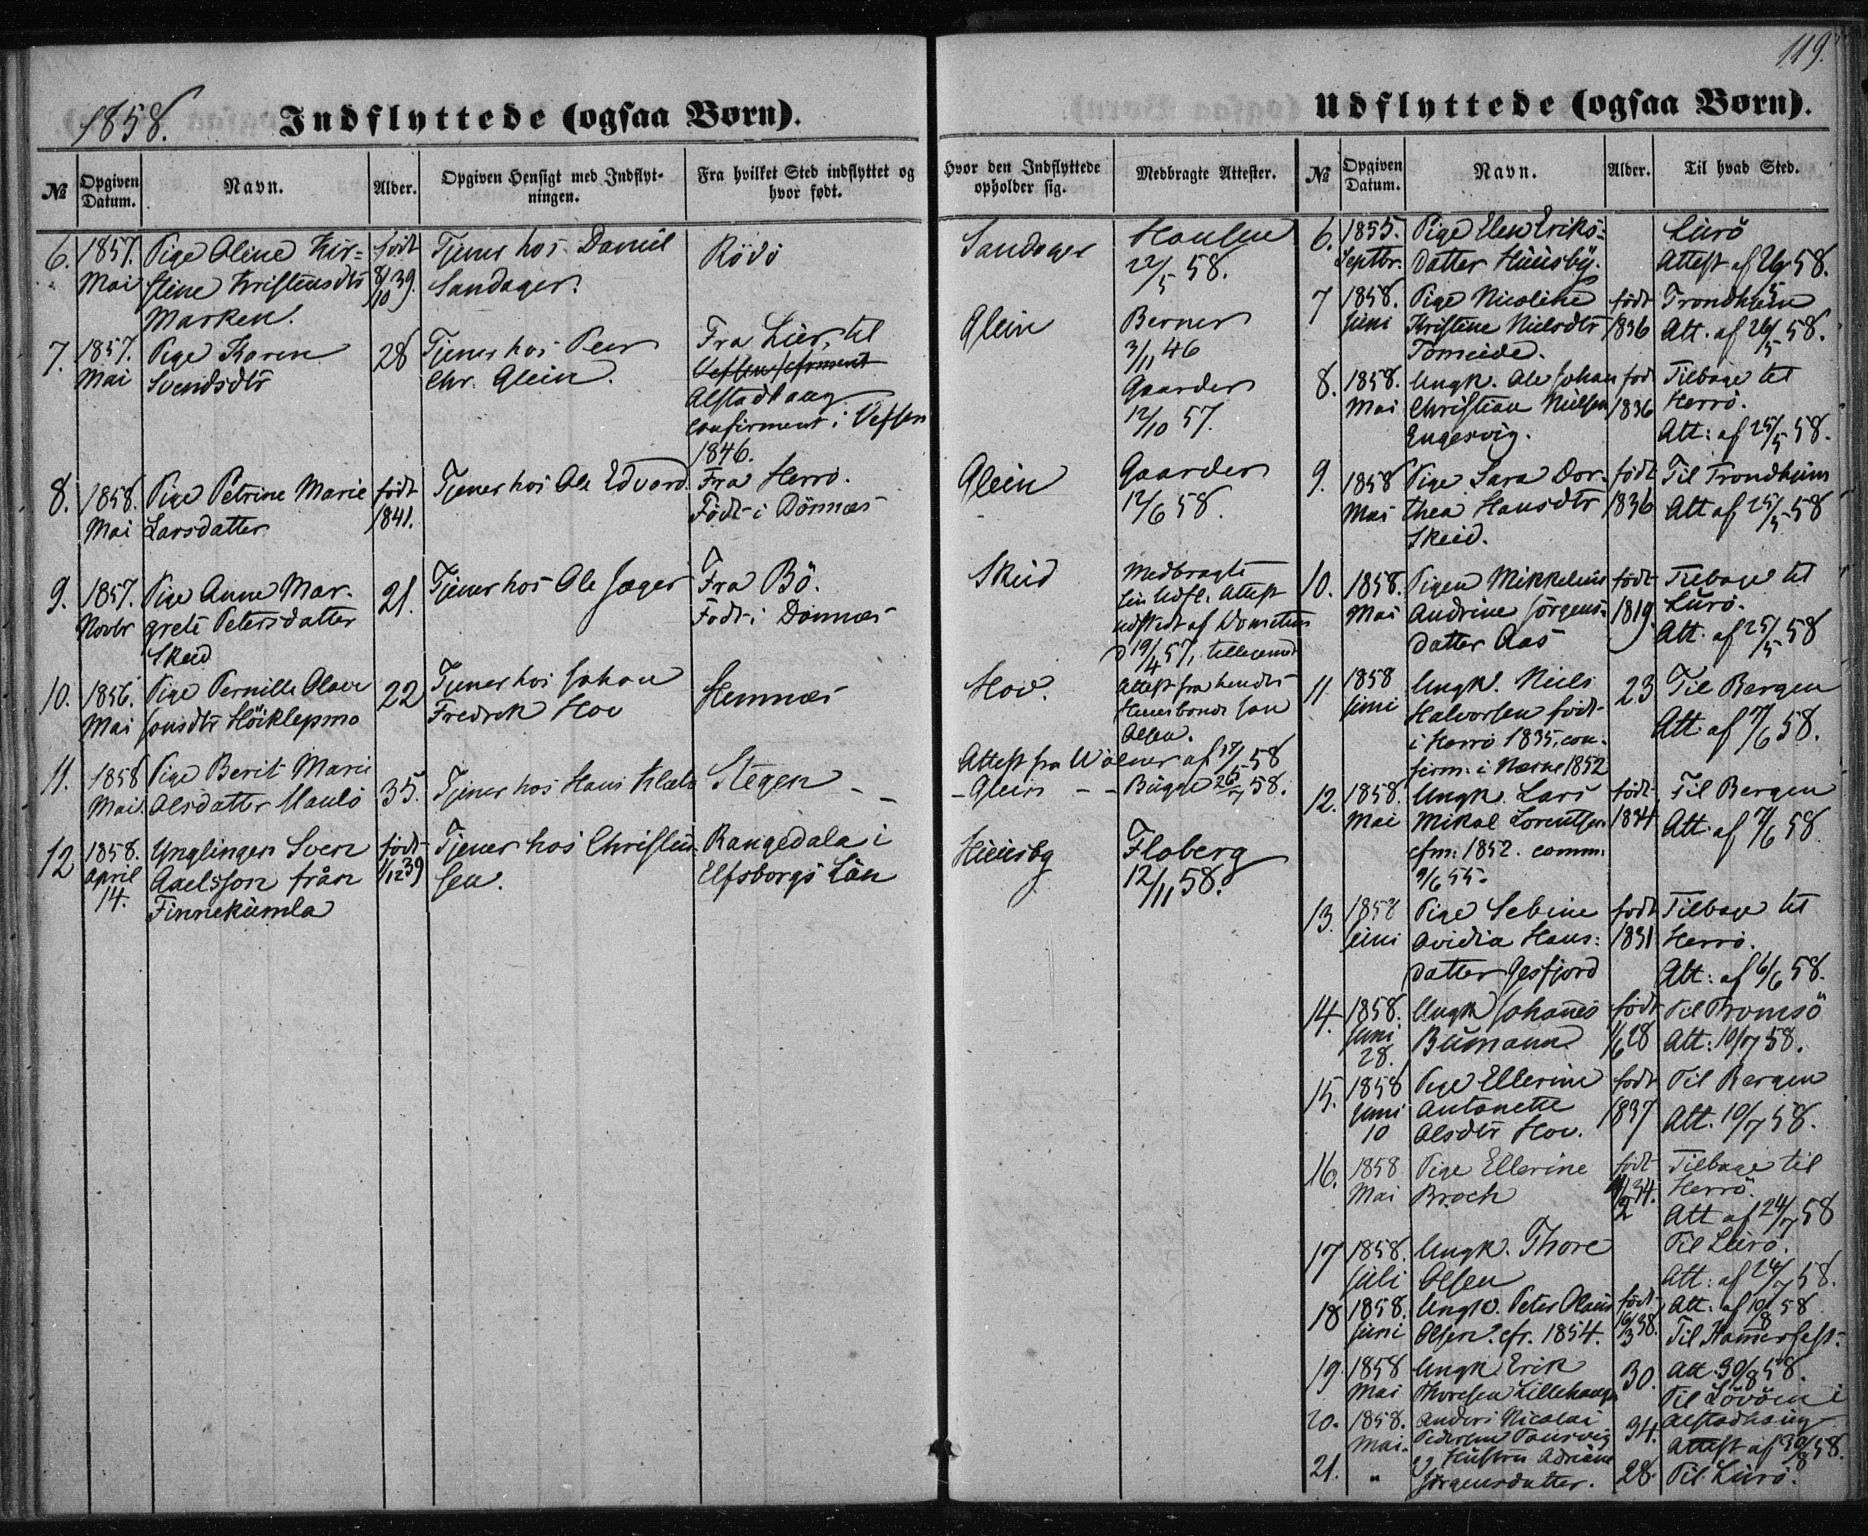 119.
1858.
Indflyttede (ogsaa Børn).
№
Opgiven Datum.
Navn.
Alder.
Opgiven Hensigt med Indflyt-
ningen.
Fra hvilket Sted indflyttet og
hvor født.
Hvor den Indflyttede
opholder sig.
Medbragte Attester.
6. 1857. Pige Oline Kir- født Tjener hos Daniel Rödö Sandager Hansen
Mai stine Kristensdtr 8/10 39. Sandager. 22/5 58.
Marken.
7. 1857. Pige Karen 28 Tjener hos Peer Fra Lier, til Glein Berner
Mai Svendsdtr Chr. Glein. 3/11 46
Alstadhaug Gaarder
Confirment i Vefsen 12/10 57.
1846.
8. 1858. Pige Petrine Marie født Tjener hos Ole Edvard Fra Herrö. Glein Gaarder
Mai Larsdatter 1841. Födt i Dönnæs 12/6 58.
9. 1857. Pige Anne Mar- 21. Tjener hos Ole Jæger Fra Bö. Skeid Medbragte
Novbr grete Petersdatter Födt i Dönnæs sin Udfl. Attest
Skeid udstedt af
19/4 57,
10. 1856. Pige Pernille Olave 22 Tjener hos Johan Hemnæs Hov. Attest fra hendes
Mai Fredrik Hov Huusbonde Jon
Olsen.
11. 1858 Pige Berit Marie 35. Tjener hos Hans Stegen Attest fra af 58
Mai Olsdatter Glein Bugge 26/7 58.
12 1858. Ynglingen Sven födt Tjener hos Christen- Rangedala i Huusby Floberg
April Axelsson från 1/12 39 sen. Elfsborgs Län 12/11 58.
14. Finnekumla
Udflyttede (ogsaa Børn).
№
Opgiven Datum.
Navn.
Alder.
Til hvad Sted.
6. 1855. Pige Elen Eriks- Lurö
Septbr. datter Huusby. Attest af 26/5 58.
7 1858. Pige Nicoline født Trondhjem
Juni Kristine Nielsdtr 1836 Att. af 26/5 58.
8. 1858. Ungk. Ole Johan født Tilbage til
Mai Christian Nielsen 1836 Herrö.
Engesvig. Att: af 25/5 58.
9. 1858 Pige Sara Dor- født Til Trondhjem
Mai thea Hansdtr 1836 Att af 25/5 58
Skeid.
10. 1858 Pigen Mikkeline født Tilbage til
Mai Andrine Jörgens- 1819. Lurö.
datter Aas Att: af 25/5 58
11 1858 Ungk. Niels 23 Til Bergen
Juni Halvorsen født Att af 7/6 58.
i Herrö 1835, con-
firm: i Nærne 1852
12. 1858. Ungk. Lars født Til Bergen
Mai Mikal Lorentsen 1834 Att: af 7/6 58.
cfm: 1852. comm:
9/6 55.
13. 1858 Pige Sebine født Tilbage til
Juni Ovidia Hans- 1831 Herrö.
datter Gesfjord Att: af 6/6 58.
14. 1858. Ungk Johanes født Til Tromsö
Juni Bumann 1/6 28 Att: 10/7 58.
28.
15. 1858 Pige Ellerine født Til Bergen
Juni Antonette 1837 Att. 10/7 58.
10 Olsdtr Hov.
16. 1858 Pige Ellerine født Tilbage til
Mai Broch 34. Herrö
Att af 24/7 58
17 1858. Ungk. Thore Til Lurö.
Juli Olsen Att: af 24/7 58.
18 1858. Ungk. Peter Olaus født Att. af 10/8 58
Juni Olsen. cfr. 1854. 16/3 38. Til Hamerfest.
19 1858 Ungk Erik 30. Att 30/8 58.
Mai Thoresen Lillehaugen Til Lövöen i
20. 1858. Anders Nicolai 34. Alstadhaug
Mai. Pedersen Attest af 30/8 58.
21. " og Hustru Adriane 28. Til Lurö.
Jörgensdatter.